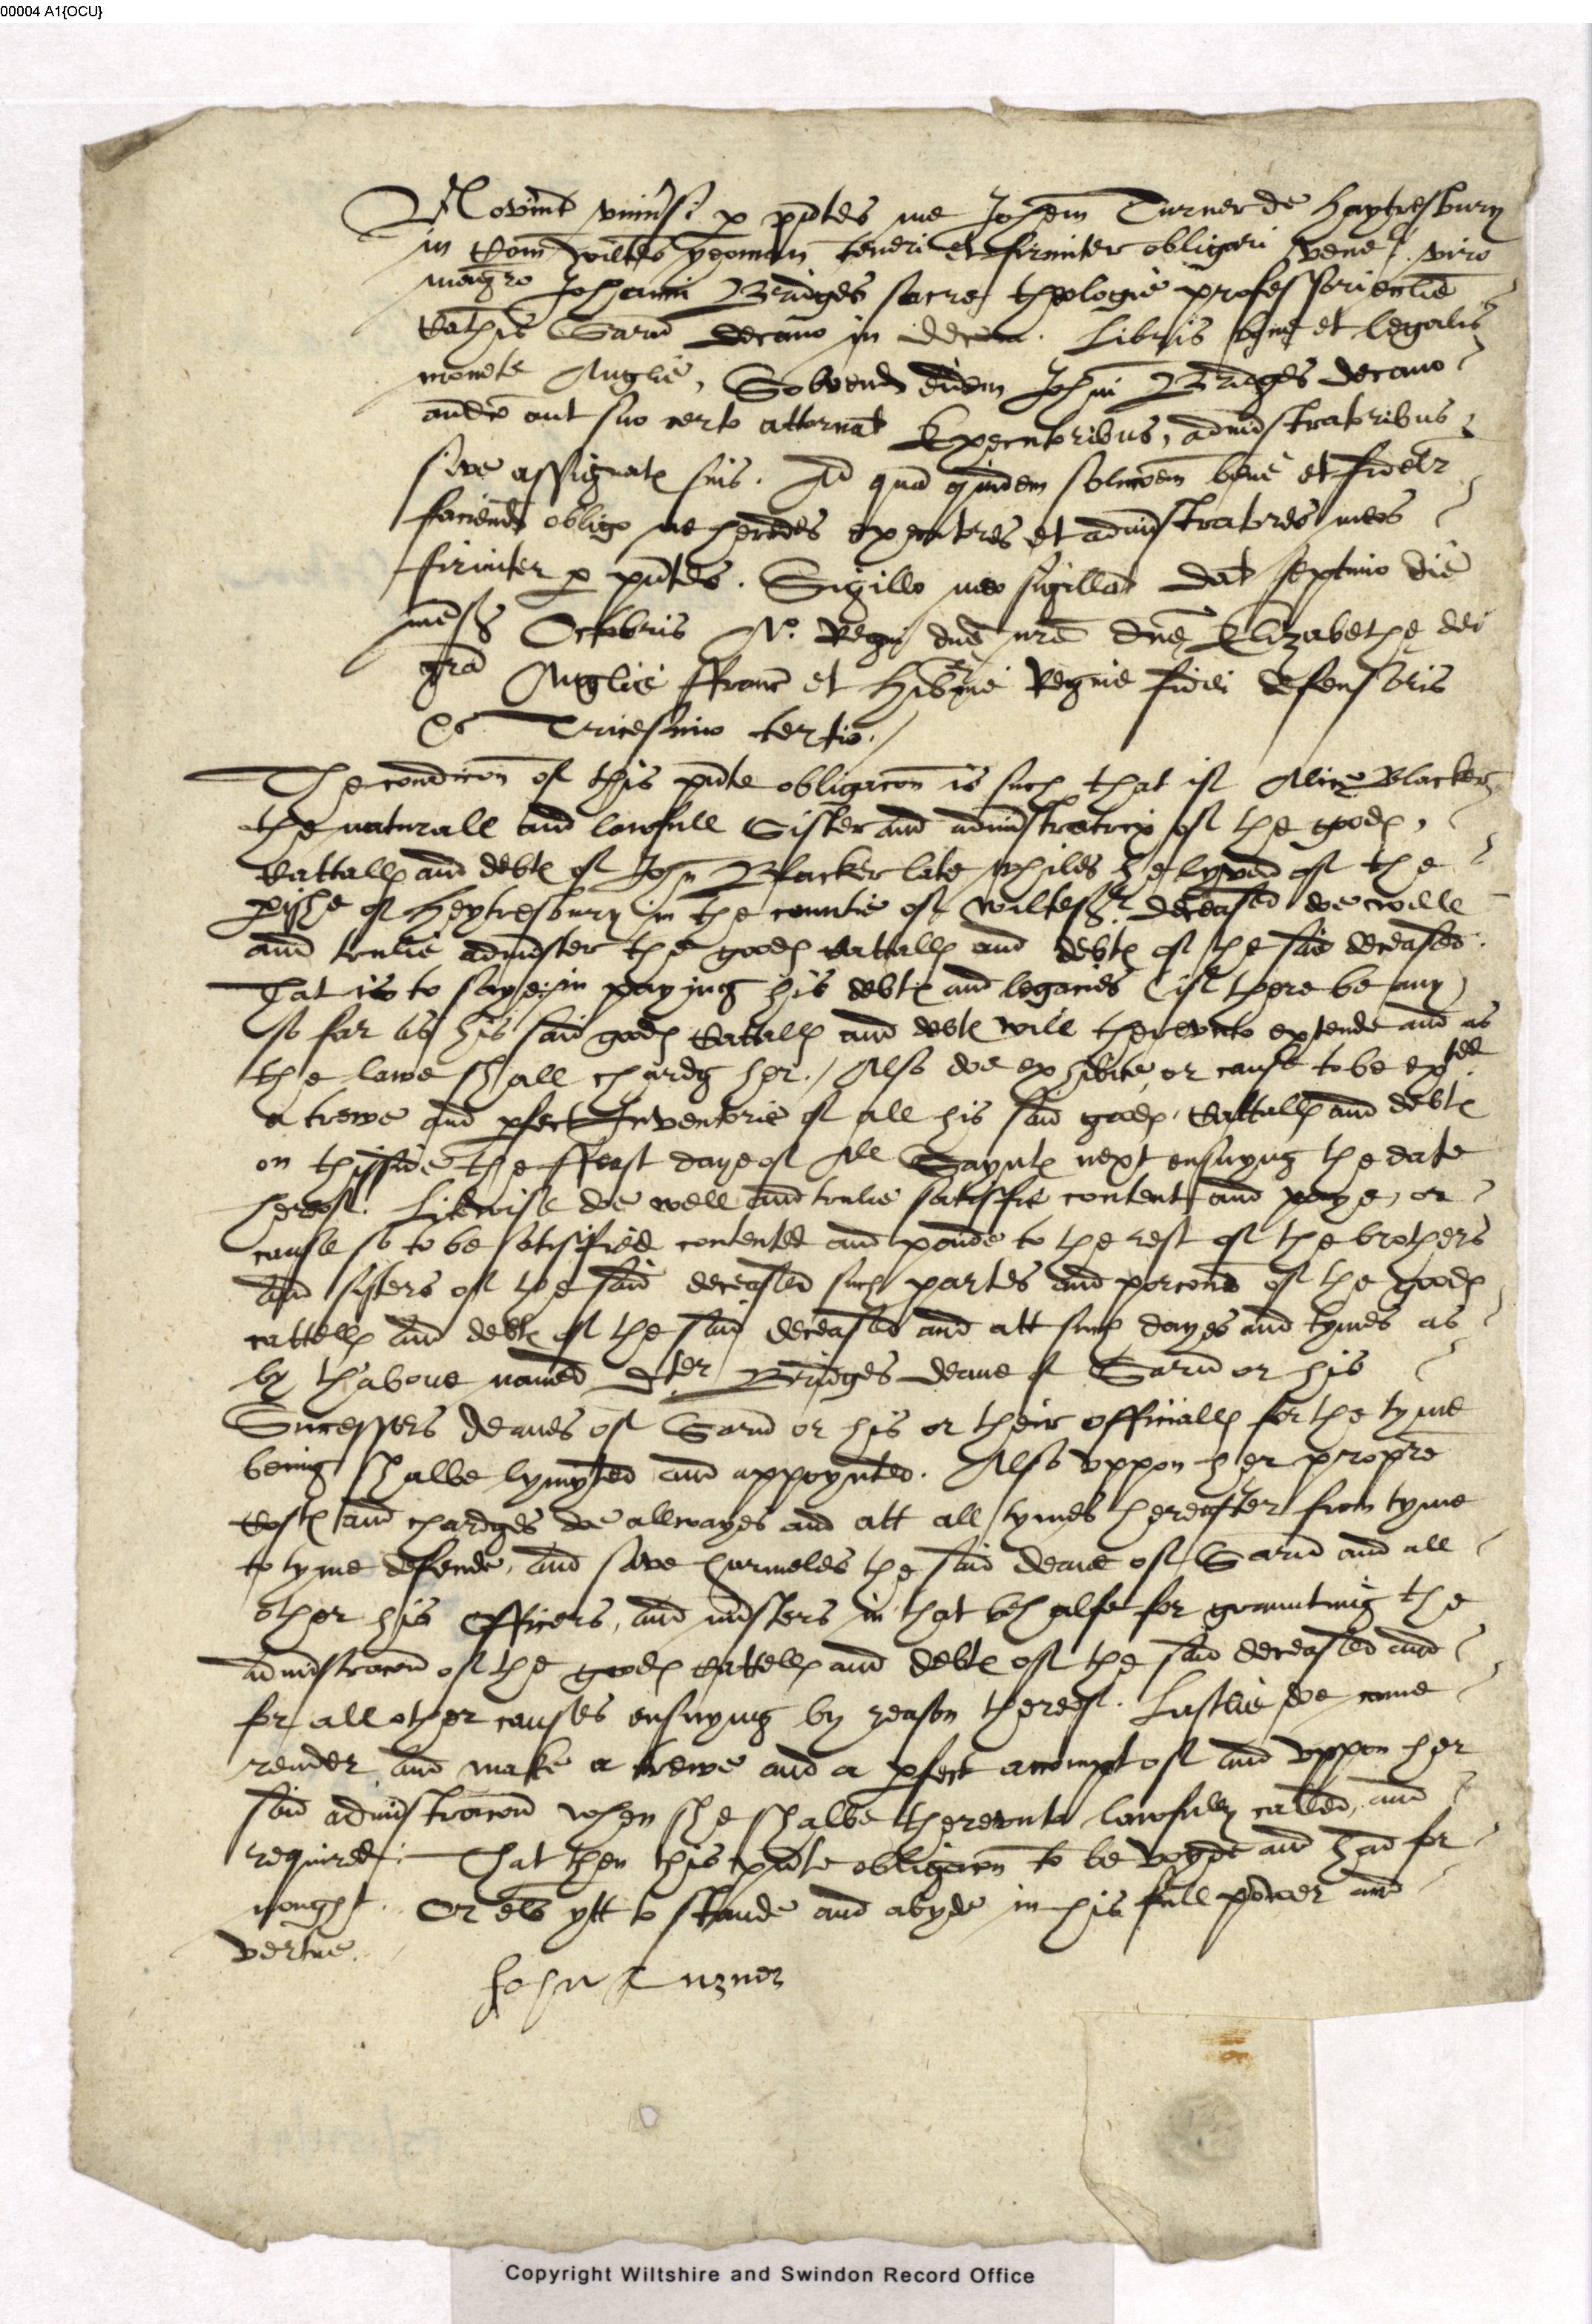 00004 A1{OCU}
Noverint univsi p pntes me Johem Turner de Haytresbury
in Com Wiltes yeoman teneri et firmiter obligari vene: viro
magro Johanni Bridges sacre theologie professori ecclie
Cathis Sarū decano in decem. Libris bone et legalis
monete Anglie, Solvend eidem Johni Bridges decano
andco aut suo certo attornat Executoribus, admistratoribus
sive assignat suis. Ad quā quidem solucoem bene et fidelr
faciend obligo me heredes executores et admistratores meos
firmiter p pntes. Sigillo meo sigillat dat septimo die
mens Octobris A°. Regni dne nre Dne Elizabethe dei
gra Anglie ffranc et Hibnie Regine fidei defensoris
&c Tricesimo tertio./
The condicon of this pnte obligacon is such that if Alice Blacker
the naturall and lawfull Sister and admistratrix of the goods,
Cattalls and debts of John Blacker late whiles he lyved of the
pishe of Heytresbury in the countie of Wiltes deceased doe welle
and trulie admister the goods Cattalls and debts of the said deceased.
That is to saye, in paying his debts and legacies (if there be any)
so far as his said goods Cattalls and debts will therevnto extende and as
the lawe shall chardg her./ Also doe exhibite, or cause to be exted
a trewe and pfect Inventorie of all his said goods, Cattalls and debts
on thisside the ffeast daye of All Saynts next ensuyng the date
hereof. Likewise doe well and trulie satisfie content and paye, or
cause so to be satisfied contented and paide to the rest of the brothers
and sisters of the said deceased such partes and porcons of the goods
cattells and debts of the said deceased and att such dayes and tymes as
by thabove named Bridges deane of Sarū or his
Successers deanes of Sarū or his or their officialls for the tyme
being shalbe lymyted and appoynted. Also vppon her propre
Costs and chardges doe allwayes and att all tymes hereafter from tyme
to tyme defende, and save harmeles the said deane of Sarū and all
other his officers, and misters in that behalfe for graunting the
admistracon of the goods cattells and debts of the said deceased and
for all other causes ensuyng by reason thereof. Lastlie doe come
render and make a trewe and a pfect accompt of and vppon her
said admistracon when she shalbe therevnto lawfully called, and
required: That then this pnte obligacon to be voyde and had for
nought. Or els ytt to stande and abyde in his full power and
vertue.
John Turner
Copyright Wiltshire and Swindon Record Office